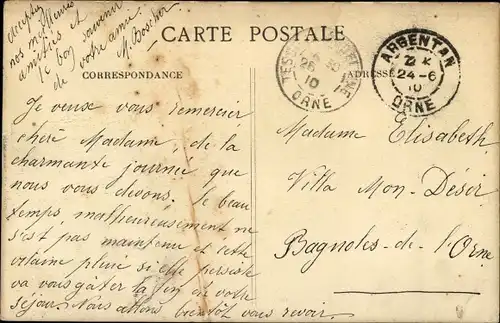 Acceptez
nos meilleures
amitiés et
le bon souvenir
de votre amie
M. Boscher
CARTE POSTALE
CORRESPONDANCE
ADRESSE
ORNE
ARGENTAN
24-6
10
ORNE
Je veux vous remercier
chère Madame, de la
charmante journée que
nous vous devons. Le beau
temps, malheureusement ne
s'est pas maintenu et cette
vilaine pluie si elle persiste
va vous gâter la fin de votre
séjour. Nous allons bientôt vous revoir.
Madame Elisabeth
Villa Mon-Désir
Bagnoles-de-l'Orne